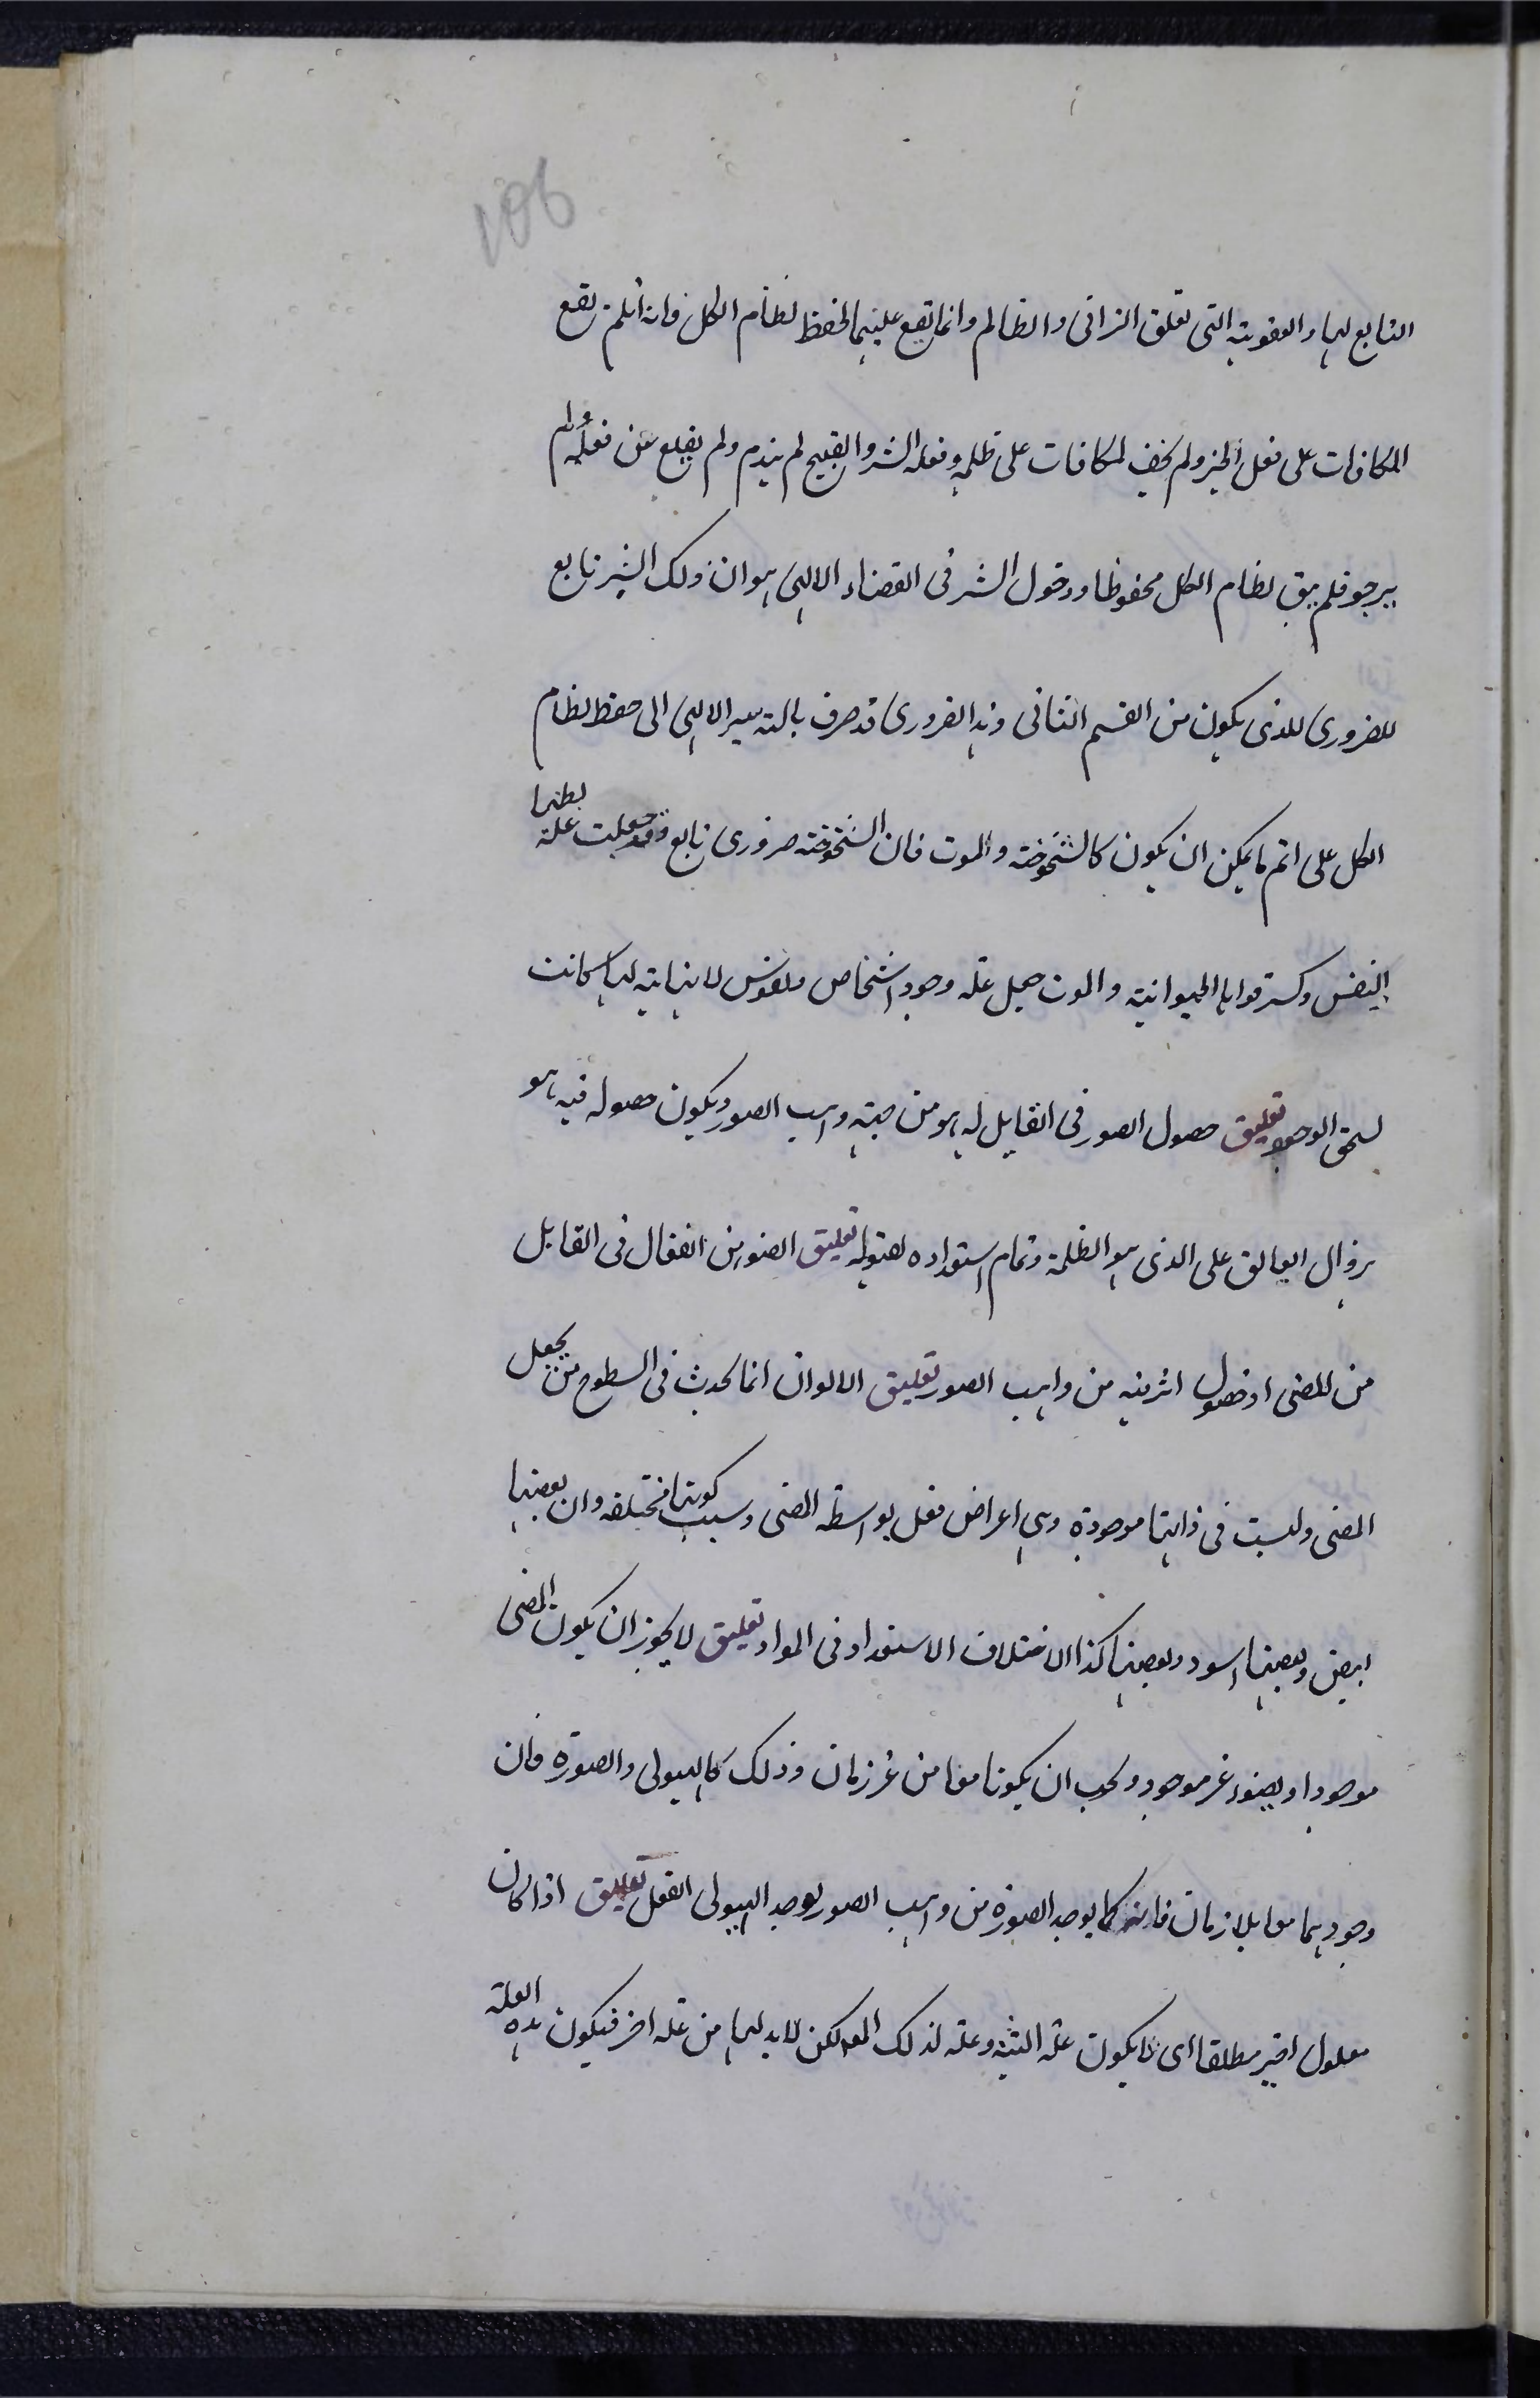 106
التابع لها والعقوبة التى تعلق الزانى والظالم وانما تقع عليهما لحفظ نظام الكل فانه ان لم تقع
المكافات على فعل الخير ولم يخف المكافات على ظلمه وفعله الشر والقبيح لم يندم ولم يقلع عن فعله ولم
يرجو فلم يبق نظام الكل محفوظا ودخول الشر فى القضاء الالهى هو ان ذلك الشر تابع
للضرورى للذى يكون من القسم الثانى وهذا الضرورى قد صرف بالتدبير الالهى الى حفظ نظام
الكل على اتم ما يمكن ان يكون كالشيخوخة والموت فان الشيخوخة ضرورى تابع وقد جعلت علة
النفس وكسر قواها الحيوانية والموت جعل علة وجود اشخاص ونفوس لا نهاية لها كانت
تستحق الوجود تعليق حصول الصور فى القابل له هو من جهة واهب الصور ويكون حصوله فيه هو
بزوال العائق على الذى هو الظلمة وتمام استعداده لقبوله تعليق الضوء من انفعال فى القابل
من المضى او حصول اثر فيه من واهب الصور تعليق الالوان انما تحدث فى السطوح من يجعل
المضى وليست فى ذاتها موجودة وهى اعراض تفعل بواسطة المضى وسبب كونها مختلفة وان بعضها
ابيض وبعضها اسود وبعضها كذا اختلاف الاستعداد فى المواد تعليق لا يجوز ان يكون المضى
موجودا والضوء غير موجود ويجب ان يكونا معا من غير زمان وذلك كالهيولى والصورة فان
وجودهما معا بلا زمان فانه كما يوجد الصورة من واهب الصور يوجد الهيولى بالفعل تعليق اذا كان
معلول اخير مطلقا اى لا يكون علة البتة وعلة لذلك المعلول لكن لا بد لها من علة اخر فيكون هذه العلة